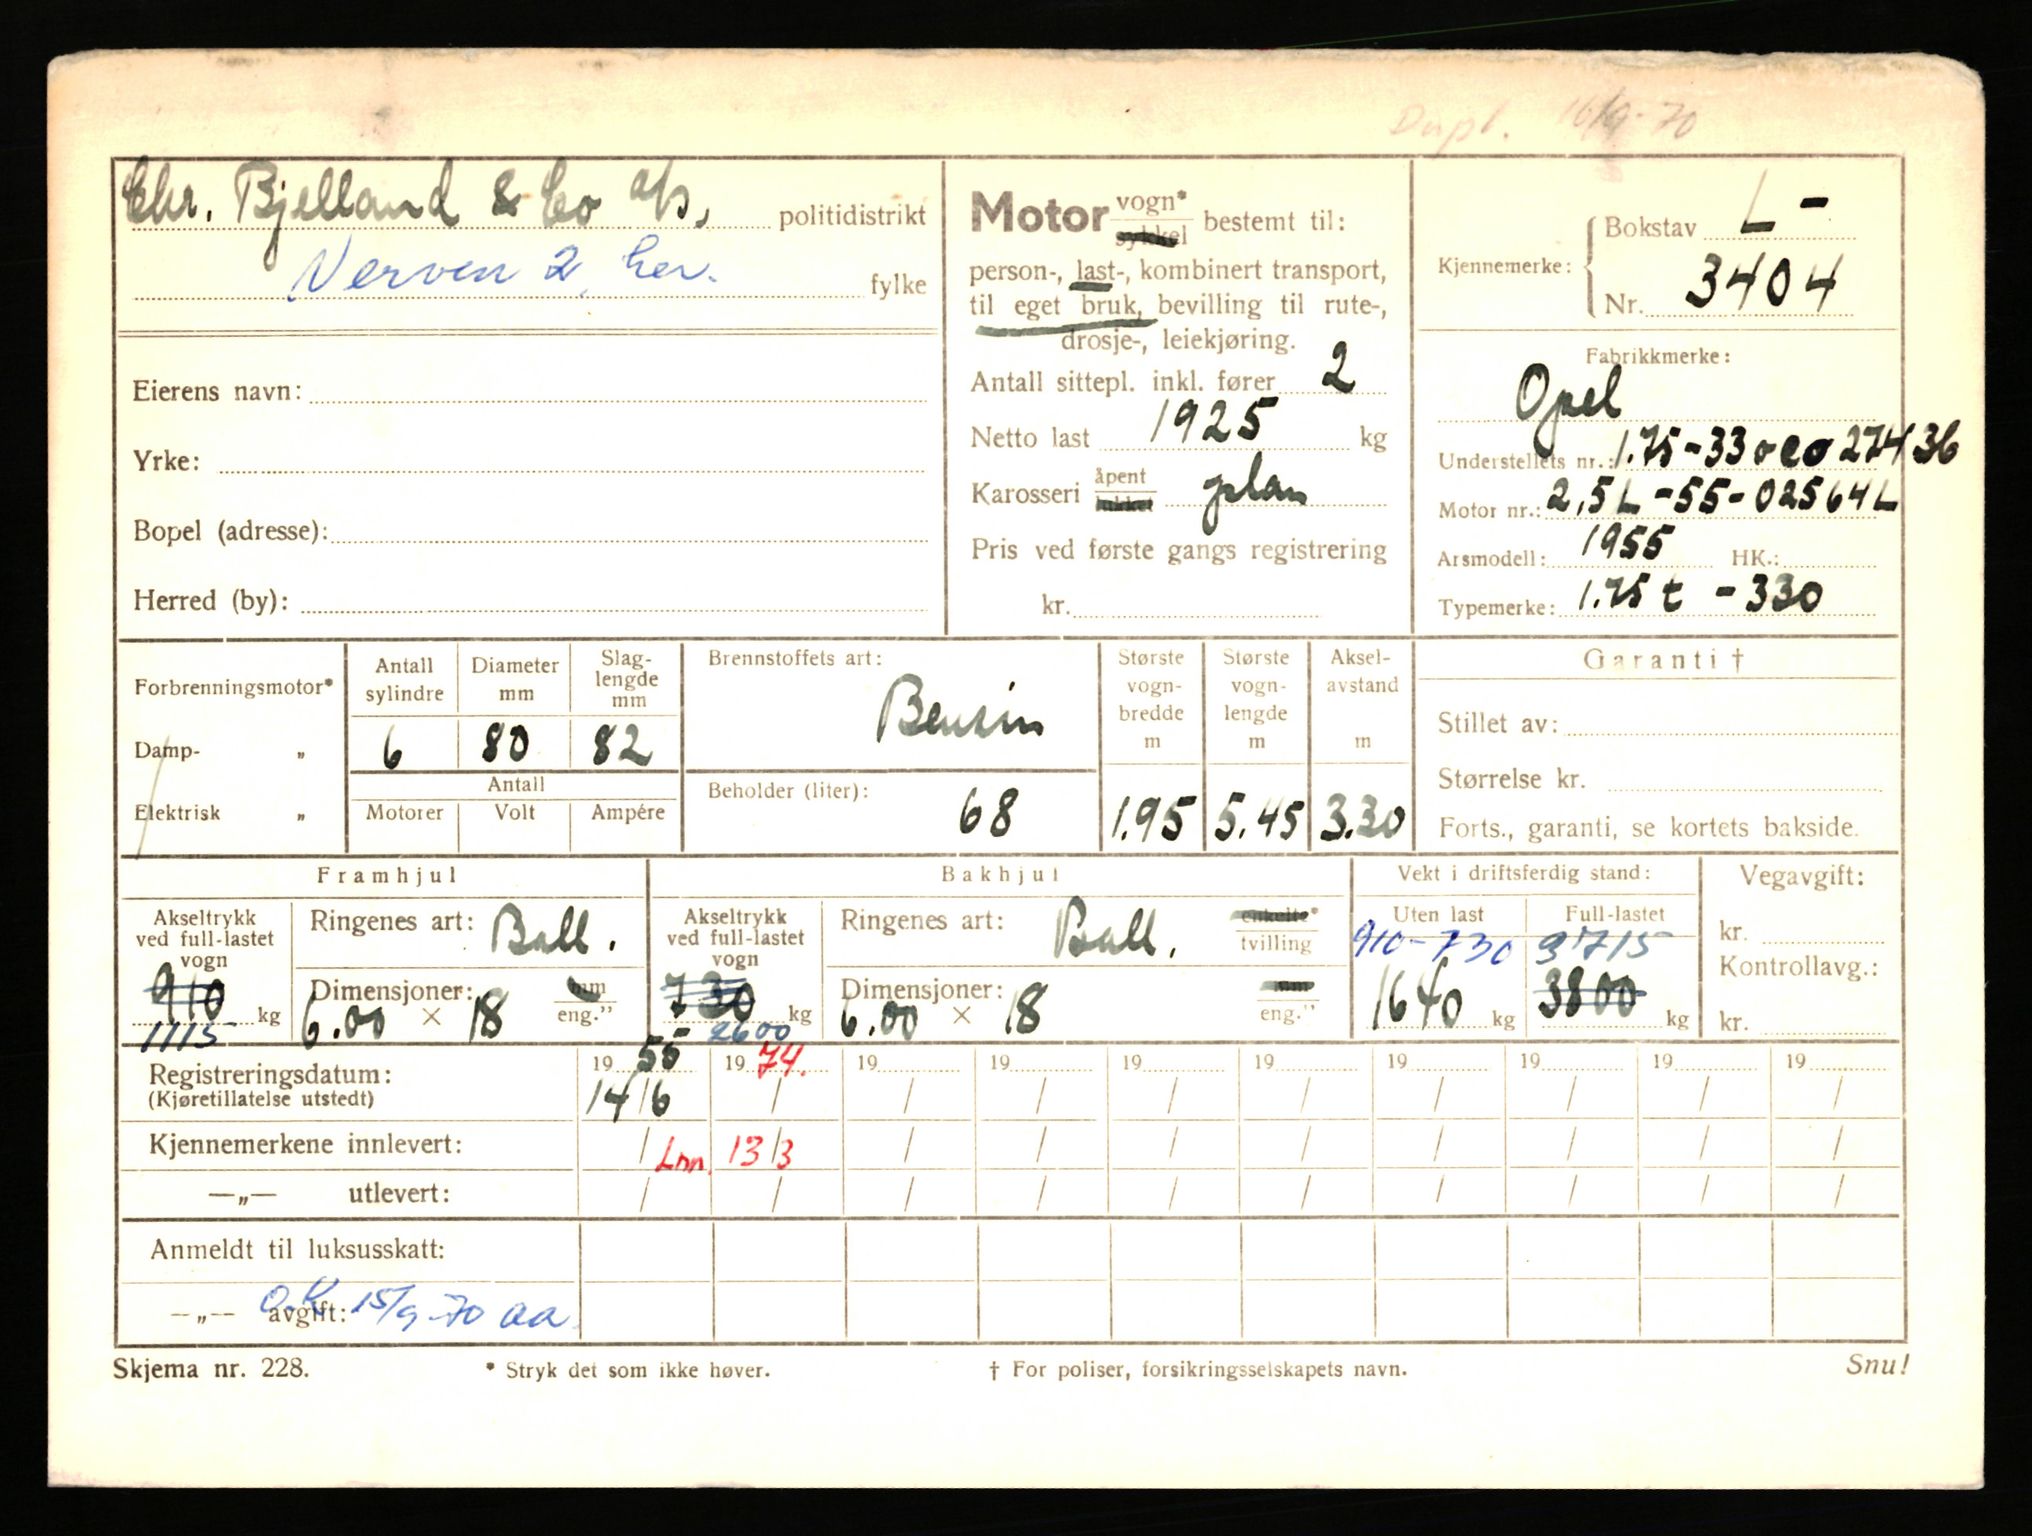 Dupl. 16/9-70
Chr. Bjelland & Co a/s, politidistrikt
Verven 2, her. fylke
Eierens navn:
Yrke:
Bopel (adresse):
Herred (by):
Motor vogn* sykkel bestemt til:
person-, last-, kombinert transport,
til eget bruk, bevilling til rute-,
drosje-, leiekjøring.
Antall sittepl. inkl. fører 2
Netto last 1925 kg
Karosseri åpent lukket plan
Pris ved første gangs registrering
kr.
Kjennemerke: Bokstav L-
Nr. 3404
Fabrikkmerke:
Opel
Understellets nr.: 1.75-33 oeo 27436
Motor nr.: 2,5L-55-02564L
Arsmodell: 1955 HK.:
Typemerke: 1.75 t -330
Forbrenningsmotor*
Damp- „
Elektrisk „
Antall sylindre
Diameter mm
Slag-lengde mm
6 80 82
Antall
Motorer Volt Ampére
Brennstoffets art:
Bensin
Beholder (liter):
68
Største vogn-bredde m
1.95
Største vogn-lengde m
5.45
Aksel-avstand m
3.30
Garanti †
Stillet av:
Størrelse kr.
Forts., garanti, se kortets bakside.
Framhjul
Akseltrykk ved full-lastet vogn
910 kg
1115
Ringenes art: Ball.
Dimensjoner: mm
6.00 × 18 eng."
Bakhjul
Akseltrykk ved full-lastet vogn
730 kg
2600
Ringenes art: Ball. enkelte* tvilling
Dimensjoner: mm
6.00 × 18 eng."
Vekt i driftsferdig stand:
Uten last Full-lastet
910-730 3715
1640 kg 3800 kg
Vegavgift:
kr.
Kontrollavg.:
kr.
Registreringsdatum: 19 55 19 74. 19 19 19 19 19 19 19 19
(Kjøretillatelse utstedt) 14/6 / / / / / / / / /
Kjennemerkene innlevert: / Lnn. 13/3 / / / / / / / /
—„— utlevert: / / / / / / / / / /
Anmeldt til luksusskatt:
—„— avgift: O.K 15/9-70 aa.
Skjema nr. 228. * Stryk det som ikke høver. † For poliser, forsikringsselskapets navn. Snu!